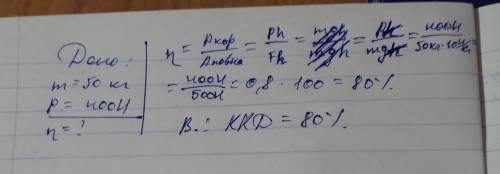 Дано:
m = 50 кг
P = 400Н
η = ?
η = Aкор / Aповна = Ph / Fh = mgh / mgh = Ph / mgh = 400Н / 50кг·10Н/кг
= 400Н / 500Н = 0,8 · 100 = 80%.
В.: ККD = 80%.